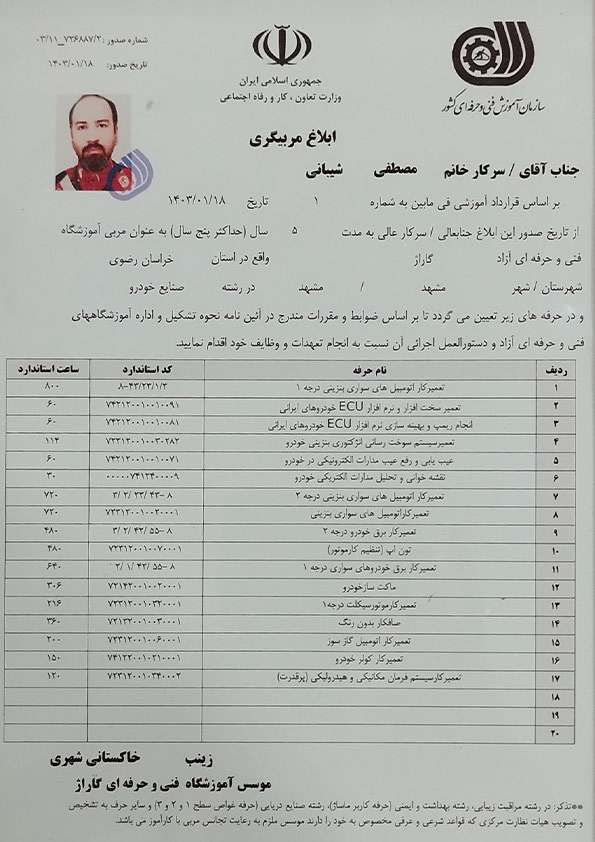 شماره صدور: ۰۳/۱۱_۷۲۶۸۸۷/۲
تاریخ صدور: ۱۴۰۳/۰۱/۱۸
جمهوری اسلامی ایران
وزارت تعاون ، کار و رفاه اجتماعی
سازمان آموزش فنی و حرفه ای کشور
ابلاغ مربیگری
جناب آقای / سرکار خانم مصطفی شیبانی
بر اساس قرارداد آموزشی فی مابین به شماره ۱ تاریخ ۱۴۰۳/۰۱/۱۸
از تاریخ صدور این ابلاغ جنابعالی / سرکار عالی به مدت ۵ سال (حداکثر پنج سال) به عنوان مربی آموزشگاه
فنی و حرفه ای آزاد گاراژ واقع در استان خراسان رضوی
شهرستان / شهر مشهد / مشهد در رشته صنایع خودرو
و در حرفه های زیر تعیین می گردد تا بر اساس ضوابط و مقررات مندرج در آئین نامه نحوه تشکیل و اداره آموزشگاههای
فنی و حرفه ای آزاد و دستورالعمل اجرائی آن نسبت به انجام تعهدات و وظایف خود اقدام نمایید.
ردیف نام حرفه کد استاندارد ساعت استاندارد
۱ تعمیرکار اتومبیل های سواری بنزینی درجه ۱ ۸-۴۳/۲۳/۱/۳ ۸۰۰
۲ تعمیر سخت افزار و نرم افزار ECU خودروهای ایرانی ۷۴۲۱۲۰۰۱۰۰۱۰۰۹۱ ۶۰
۳ انجام ریمپ و بهینه سازی نرم افزار ECU خودروهای ایرانی ۷۴۲۱۲۰۰۱۰۰۱۰۰۸۱ ۶۰
۴ تعمیرسیستم سوخت رسانی انژکتوری بنزینی خودرو ۷۲۳۱۰۰۱۰۰۳۰۲۸۲ ۱۱۴
۵ عیب یابی و رفع عیب مدارات الکترونیکی در خودرو ۷۴۲۱۲۰۰۱۰۰۱۰۰۷۱ ۶۰
۶ نقشه خوانی و تحلیل مدارات الکتریکی خودرو ۰۰۰۰۰۷۴۱۲۴۰۰۰۰۹ ۳۰
۷ تعمیرکار اتومبیل های سواری بنزینی درجه ۲ ۸ -۴۳/ ۲۳/ ۲/ ۳ ۷۲۰
۸ تعمیرکاراتومبیل های سواری بنزینی ۷۲۳۱۰۰۱۰۰۲۰۰۰۱ ۷۲۰
۹ تعمیرکار برق خودرو درجه ۲ ۸ -۵۵ /۴۲ /۲ /۳ ۴۸۰
۱۰ تون اپ (تنظیم کارموتور) ۷۲۳۱۲۰۰۱۰۰۷۰۰۰۱ ۴۸۰
۱۱ تعمیرکار برق خودروهای سواری درجه ۱ ۸ -۵۵ /۴۲ /۱ /۲ ۶۴۰
۱۲ ماکت سازخودرو ۷۲۱۴۲۰۰۱۰۰۲۰۰۰۱ ۳۰۶
۱۳ تعمیرکارموتورسیکلت درجه۱ ۷۲۳۱۲۰۰۱۰۳۲۰۰۰۱ ۲۱۶
۱۴ صافکار بدون رنگ ۷۲۱۳۲۰۰۱۰۰۳۰۰۰۱ ۳۶۰
۱۵ تعمیرکار اتومبیل گاز سوز ۷۲۳۱۲۰۰۱۰۰۶۰۰۰۱ ۲۰۰
۱۶ تعمیرکار کولر خودرو ۷۴۱۲۲۰۰۱۰۲۱۰۰۰۱ ۱۵۰
۱۷ تعمیرکارسیستم فرمان مکانیکی و هیدرولیکی (پرقدرت) ۷۲۳۱۲۰۰۱۰۳۴۰۰۰۲ ۱۲۰
۱۸
۱۹
۲۰
زینب خاکستانی شهری
موسس آموزشگاه فنی و حرفه ای گاراژ
**تذکر: در رشته مراقبت زیبایی، رشته بهداشت و ایمنی (حرفه کاربر ماساژ)، رشته صنایع دریایی (حرفه غواص سطح ۱ و ۲ و ۳) و سایر حرف به تشخیص
و تصویب هیات نظارت مرکزی که قواعد شرعی و عرفی مخصوص به خود را دارند موسس ملزم به رعایت تجانس مربی با کارآموز می باشد.